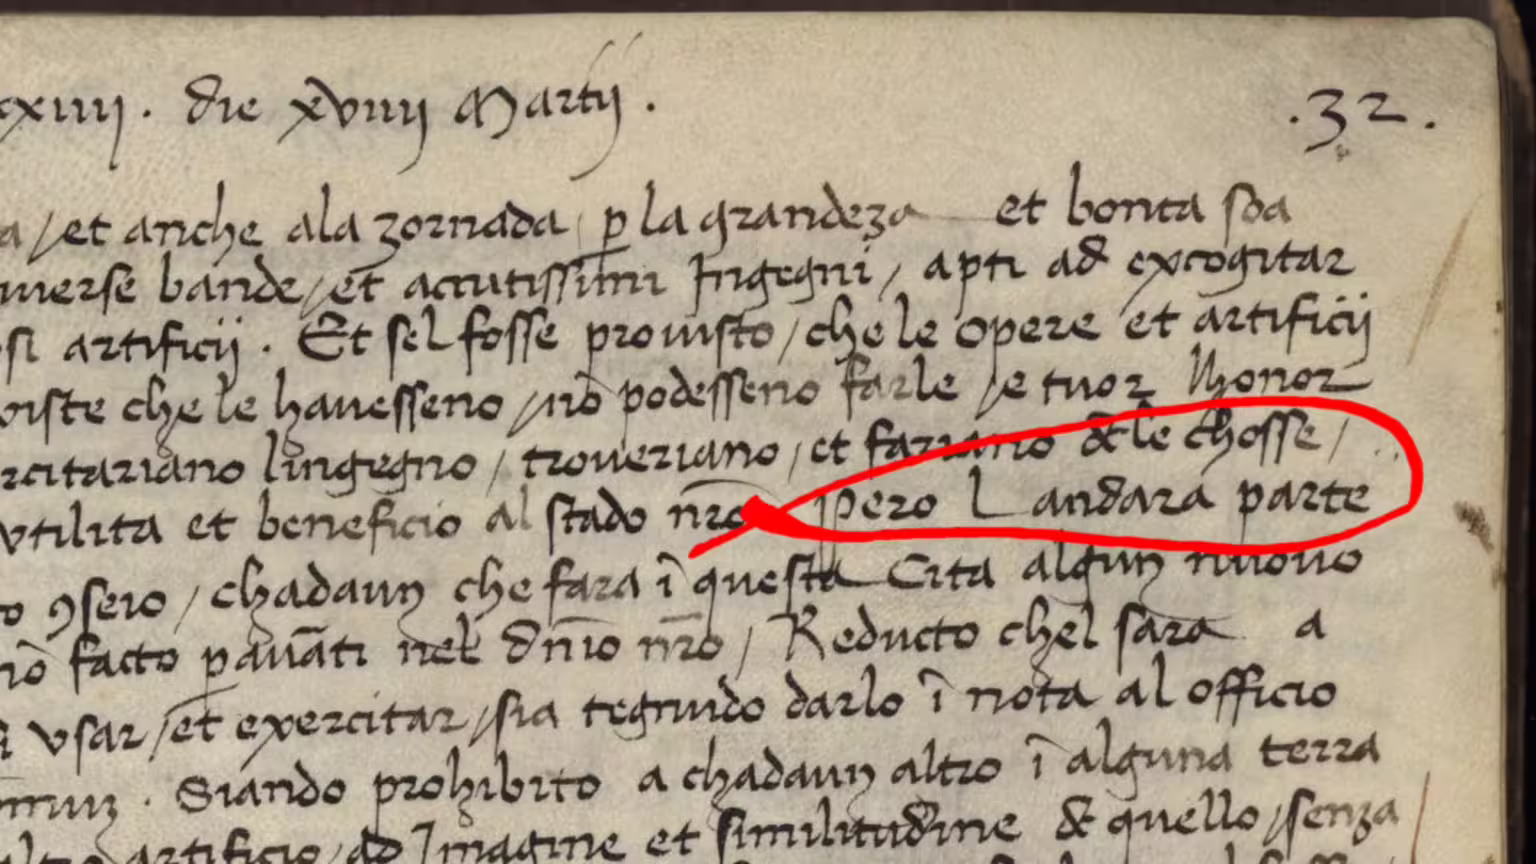 cxiiii . die xviiij Martij .
.32.
a / et anche ala zornada / p la grandeza et bonta soa
uerse bande / et acutissimi Ingegni / apti ad excogitar
si artificij . Et sel fosse prouisto / che le opere et artificij
viste che le hauesseno / nõ podesseno farle / e tuor lhonor
rcitariano lingegno / troueriano / et fariano de le chosse /
vtilita et beneficio al stado nr̃o Pero L andara parte
o ꝯseio / chadaun che fara ĩ questa Cita algun nuouo
nõ facto pauãti nel dñio nr̃o / Reducto chel sara a
i vsar / et exercitar / sia tegnudo darlo ĩ nota al officio
mun . Siando prohibito a chadaun altro ĩ alguna terra
artificio / ad Imagine et similitudine de quello / senza